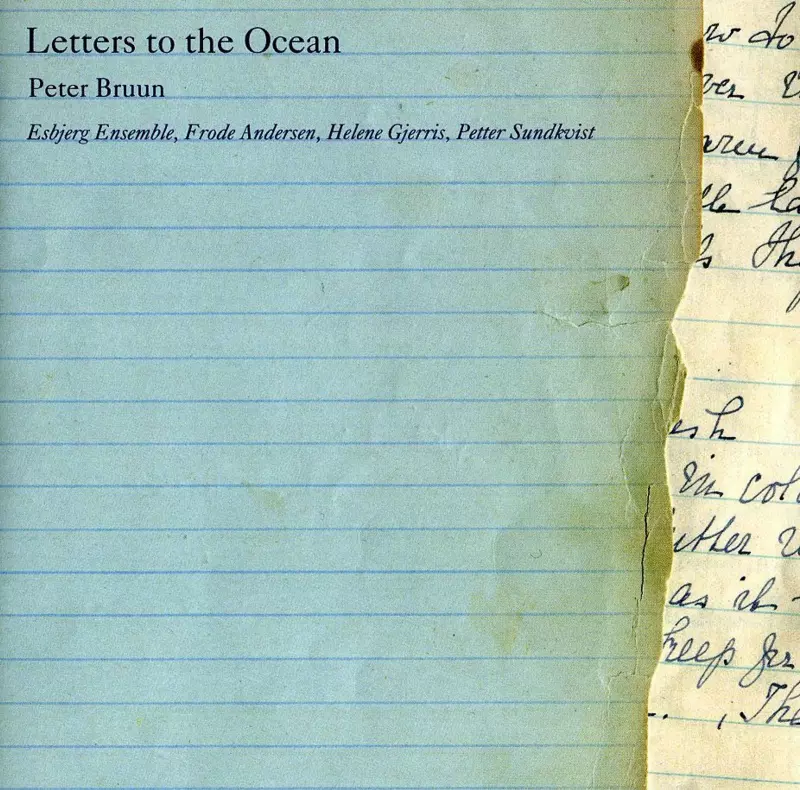 Letters to the Ocean
Peter Bruun
Esbjerg Ensemble, Frode Andersen, Helene Gjerris, Petter Sundkvist
to
esh
in col
as it -
keep for
.. , The